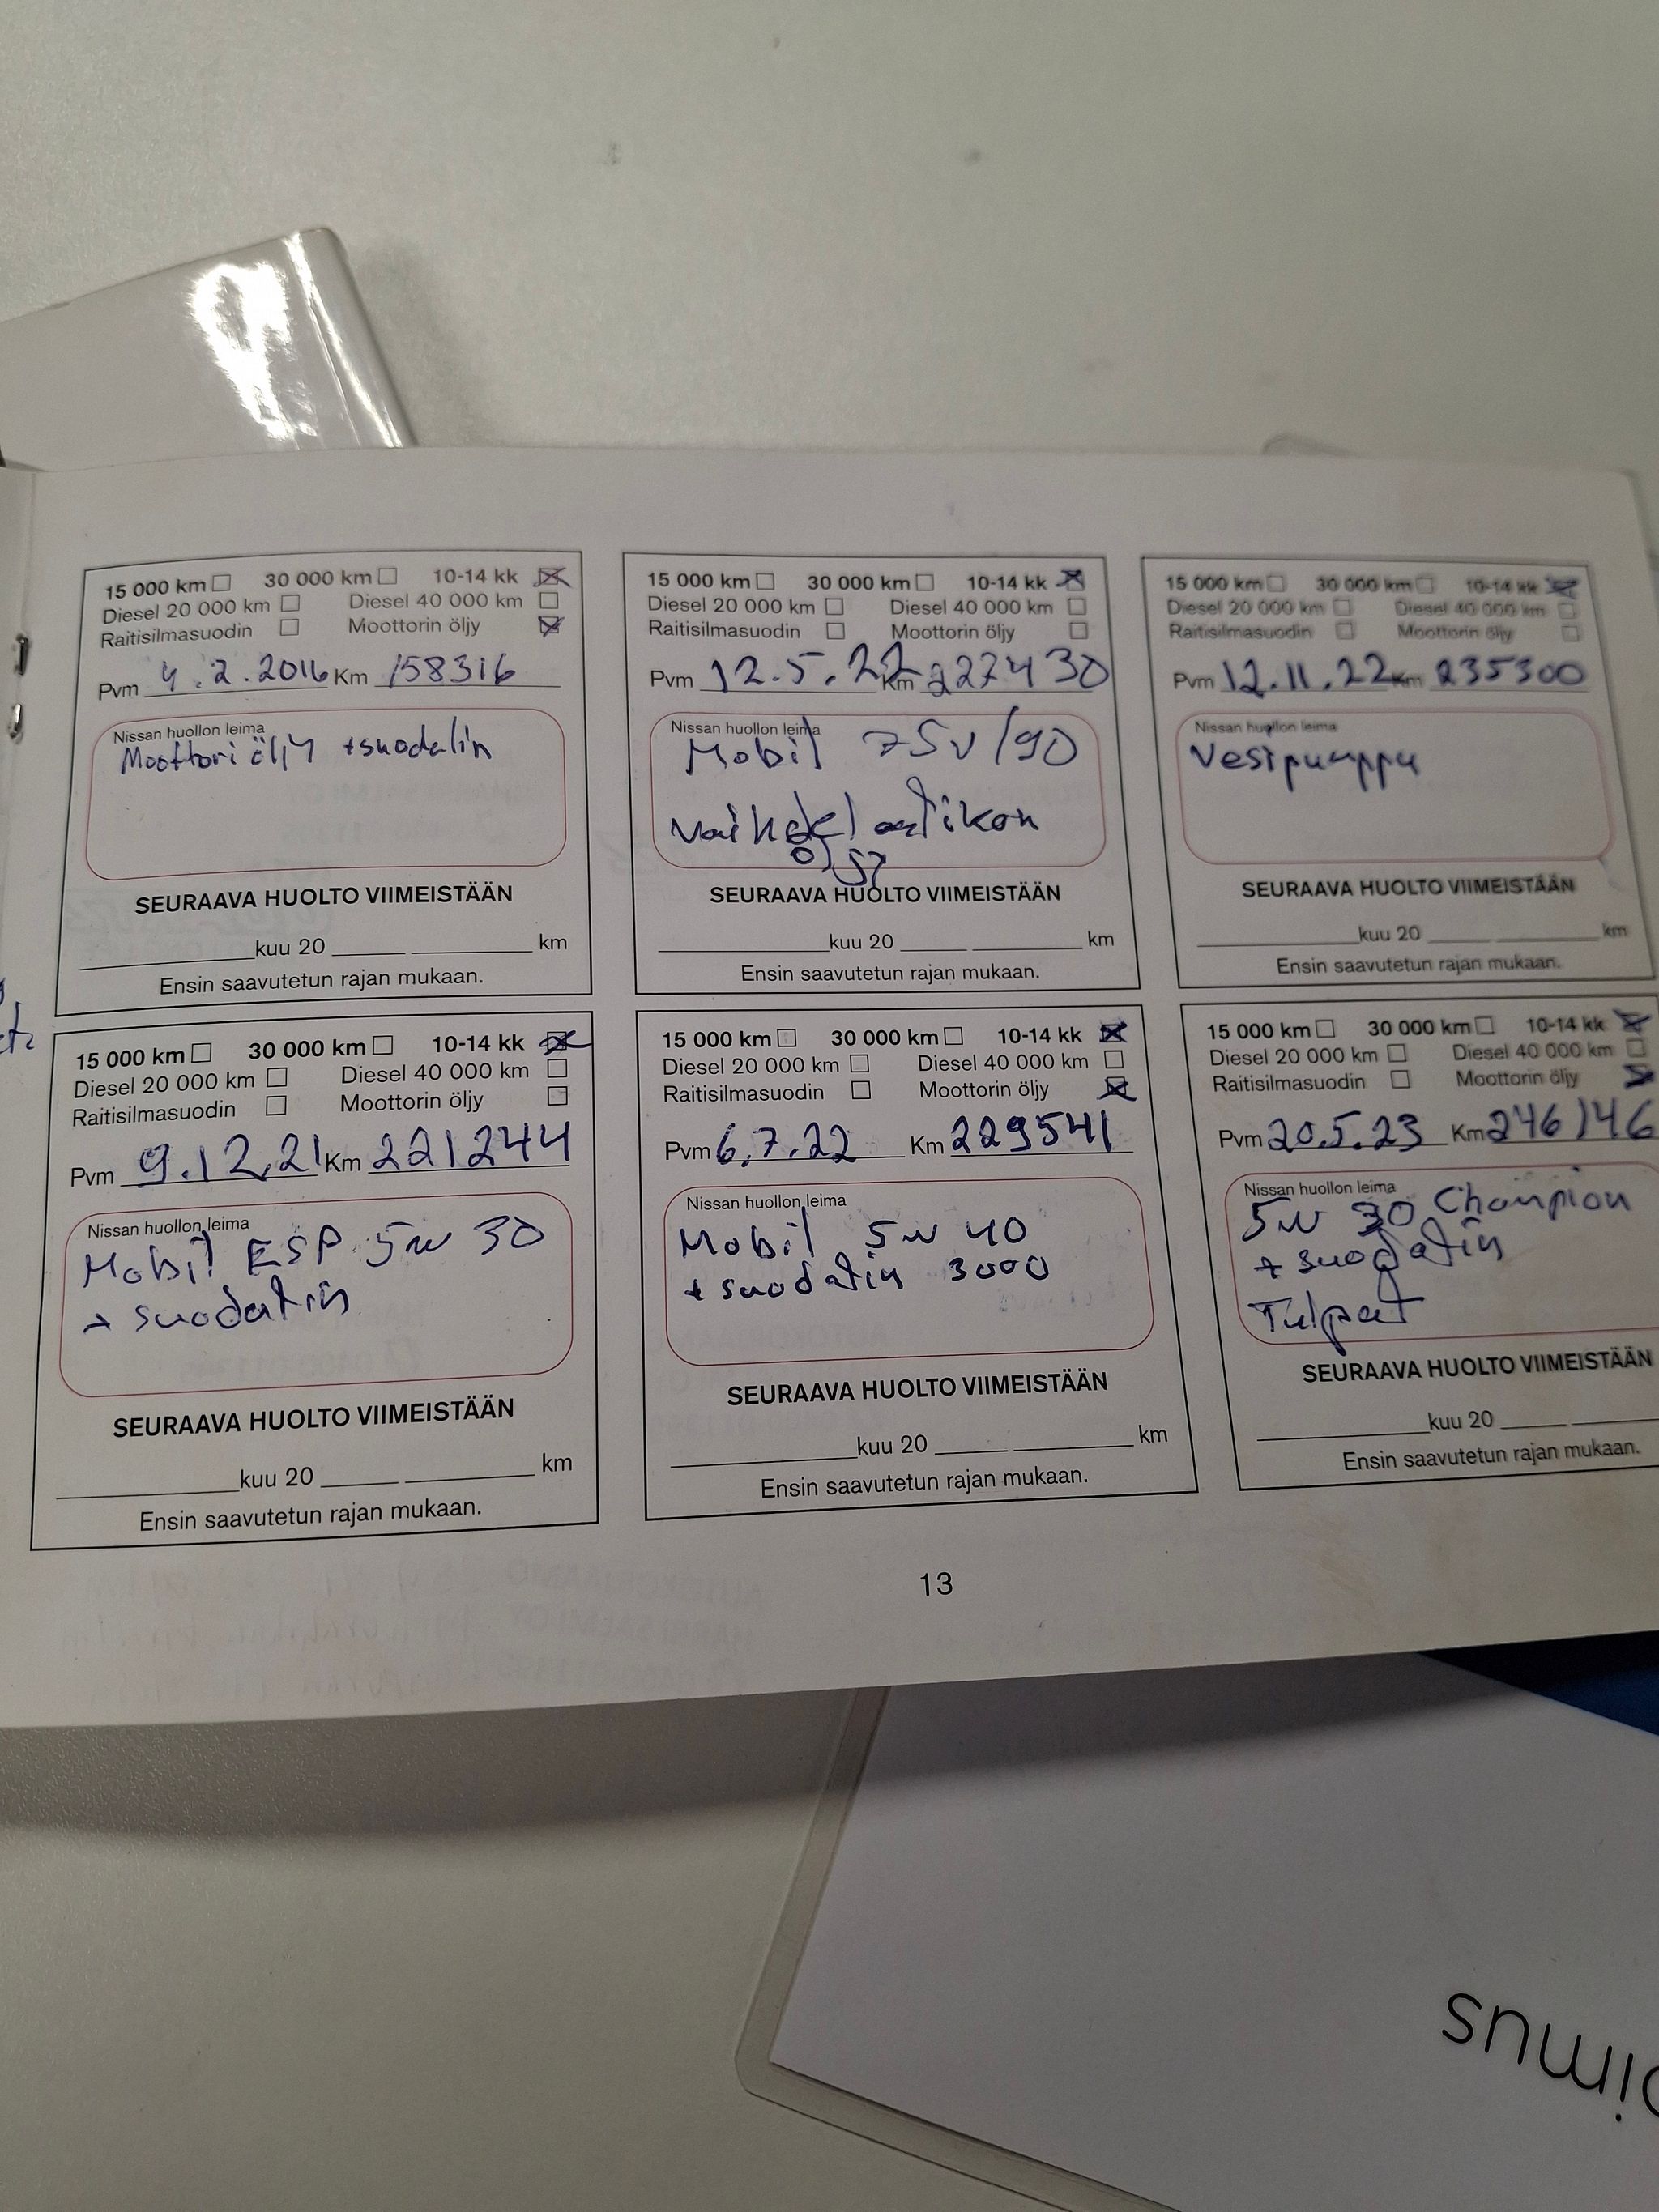 15 000 km 30 000 km 10-14 kk
Diesel 20 000 km Diesel 40 000 km
Raitisilmasuodin Moottorin öljy
Pvm 4.2.2016 Km 158316
Nissan huollon leima
Moottori öljy +suodatin
SEURAAVA HUOLTO VIIMEISTÄÄN
kuu 20 km
Ensin saavutetun rajan mukaan.
15 000 km 30 000 km 10-14 kk
Diesel 20 000 km Diesel 40 000 km
Raitisilmasuodin Moottorin öljy
Pvm 9.12.21 Km 221244
Nissan huollon leima
Mobil ESP 5w 30
+ suodatin
SEURAAVA HUOLTO VIIMEISTÄÄN
kuu 20 km
Ensin saavutetun rajan mukaan.
15 000 km 30 000 km 10-14 kk
Diesel 20 000 km Diesel 40 000 km
Raitisilmasuodin Moottorin öljy
Pvm 12.5.22 Km 227430
Nissan huollon leima
Mobil 75w/90
öljy
SEURAAVA HUOLTO VIIMEISTÄÄN
kuu 20 km
Ensin saavutetun rajan mukaan.
15 000 km 30 000 km 10-14 kk
Diesel 20 000 km Diesel 40 000 km
Raitisilmasuodin Moottorin öljy
Pvm 6.7.22 Km 229541
Nissan huollon leima
Mobil 5w 40
+ suodatin 3000
SEURAAVA HUOLTO VIIMEISTÄÄN
kuu 20 km
Ensin saavutetun rajan mukaan.
15 000 km 30 000 km 10-14 kk
Diesel 20 000 km Diesel 40 000 km
Raitisilmasuodin Moottorin öljy
Pvm 12.11.22 Km 235300
Nissan huollon leima
Vesipumppu
SEURAAVA HUOLTO VIIMEISTÄÄN
kuu 20 km
Ensin saavutetun rajan mukaan.
15 000 km 30 000 km 10-14 kk
Diesel 20 000 km Diesel 40 000 km
Raitisilmasuodin Moottorin öljy
Pvm 20.5.23 Km 246146
Nissan huollon leima
5w 30 Champion
+ suodatin
Tulpat
SEURAAVA HUOLTO VIIMEISTÄÄN
kuu 20
Ensin saavutetun rajan mukaan.
13
imus